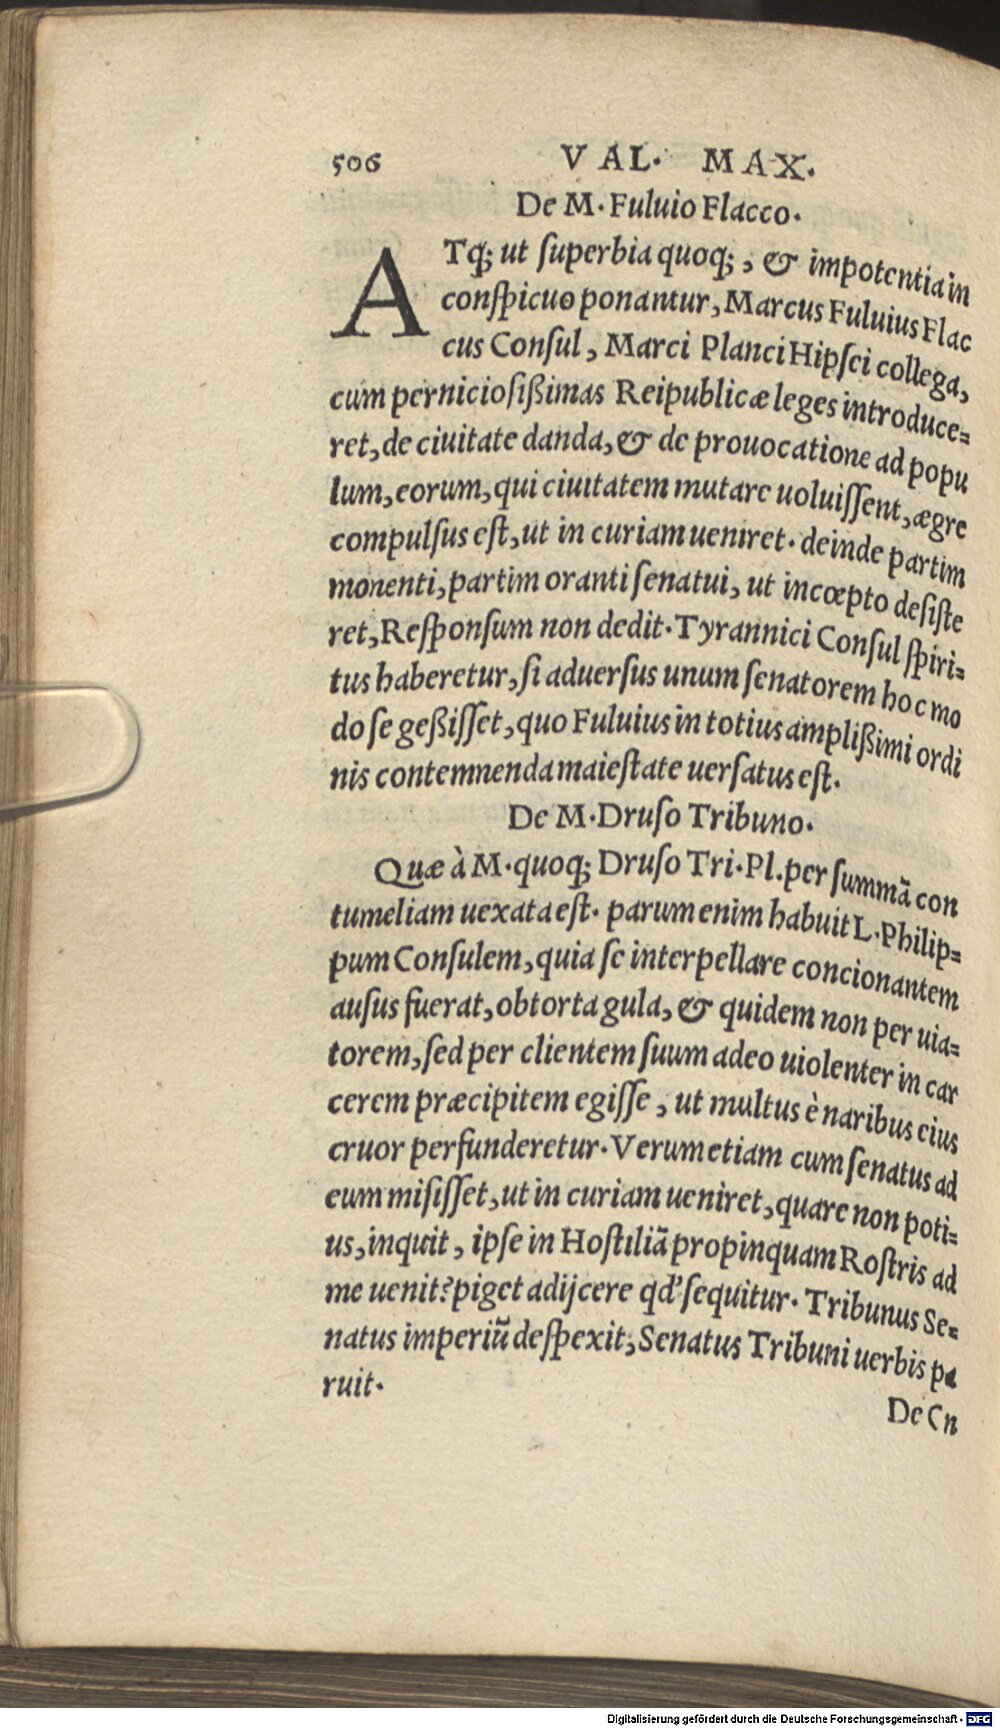 506 VAL. MAX.
De M. Fuluio Flacco.
ATq; ut ſuperbia quoq;, & impotentia in
conſpicuo ponantur, Marcus Fuluius Flac
cus Conſul, Marci Planci Hipſei collega,
cum pernicioſißimas Reipublicæ leges introduce=
ret, de ciuitate danda, & de prouocatione ad popu
lum, eorum, qui ciuitatem mutare uoluiſſent, ægre
compulſus eſt, ut in curiam ueniret. deinde partim
monenti, partim oranti ſenatui, ut incœpto deſiſte
ret, Reſponſum non dedit. Tyrannici Conſul ſpiri=
tus haberetur, ſi aduerſus unum ſenatorem hoc mo
do ſe geßiſſet, quo Fuluius in totius amplißimi ordi
nis contemnenda maieſtate uerſatus eſt.
De M. Druſo Tribuno.
Quæ à M. quoq; Druſo Tri. Pl. per ſummã con
tumeliam uexata eſt. parum enim habuit L. Philip=
pum Conſulem, quia ſe interpellare concionantem
auſus fuerat, obtorta gula, & quidem non per uia=
torem, ſed per clientem ſuum adeo uiolenter in car
cerem præcipitem egiſſe, ut multus è naribus eius
cruor perfunderetur. Verum etiam cum ſenatus ad
eum miſiſſet, ut in curiam ueniret, quare non poti=
us, inquit, ipſe in Hoſtiliã propinquam Roſtris ad
me uenit? piget adijcere qd' ſequitur. Tribunus Se=
natus imperiũ deſpexit, Senatus Tribuni uerbis pa
ruit.
De Cn
Digitalisierung gefördert durch die Deutsche Forschungsgemeinschaft - DFG